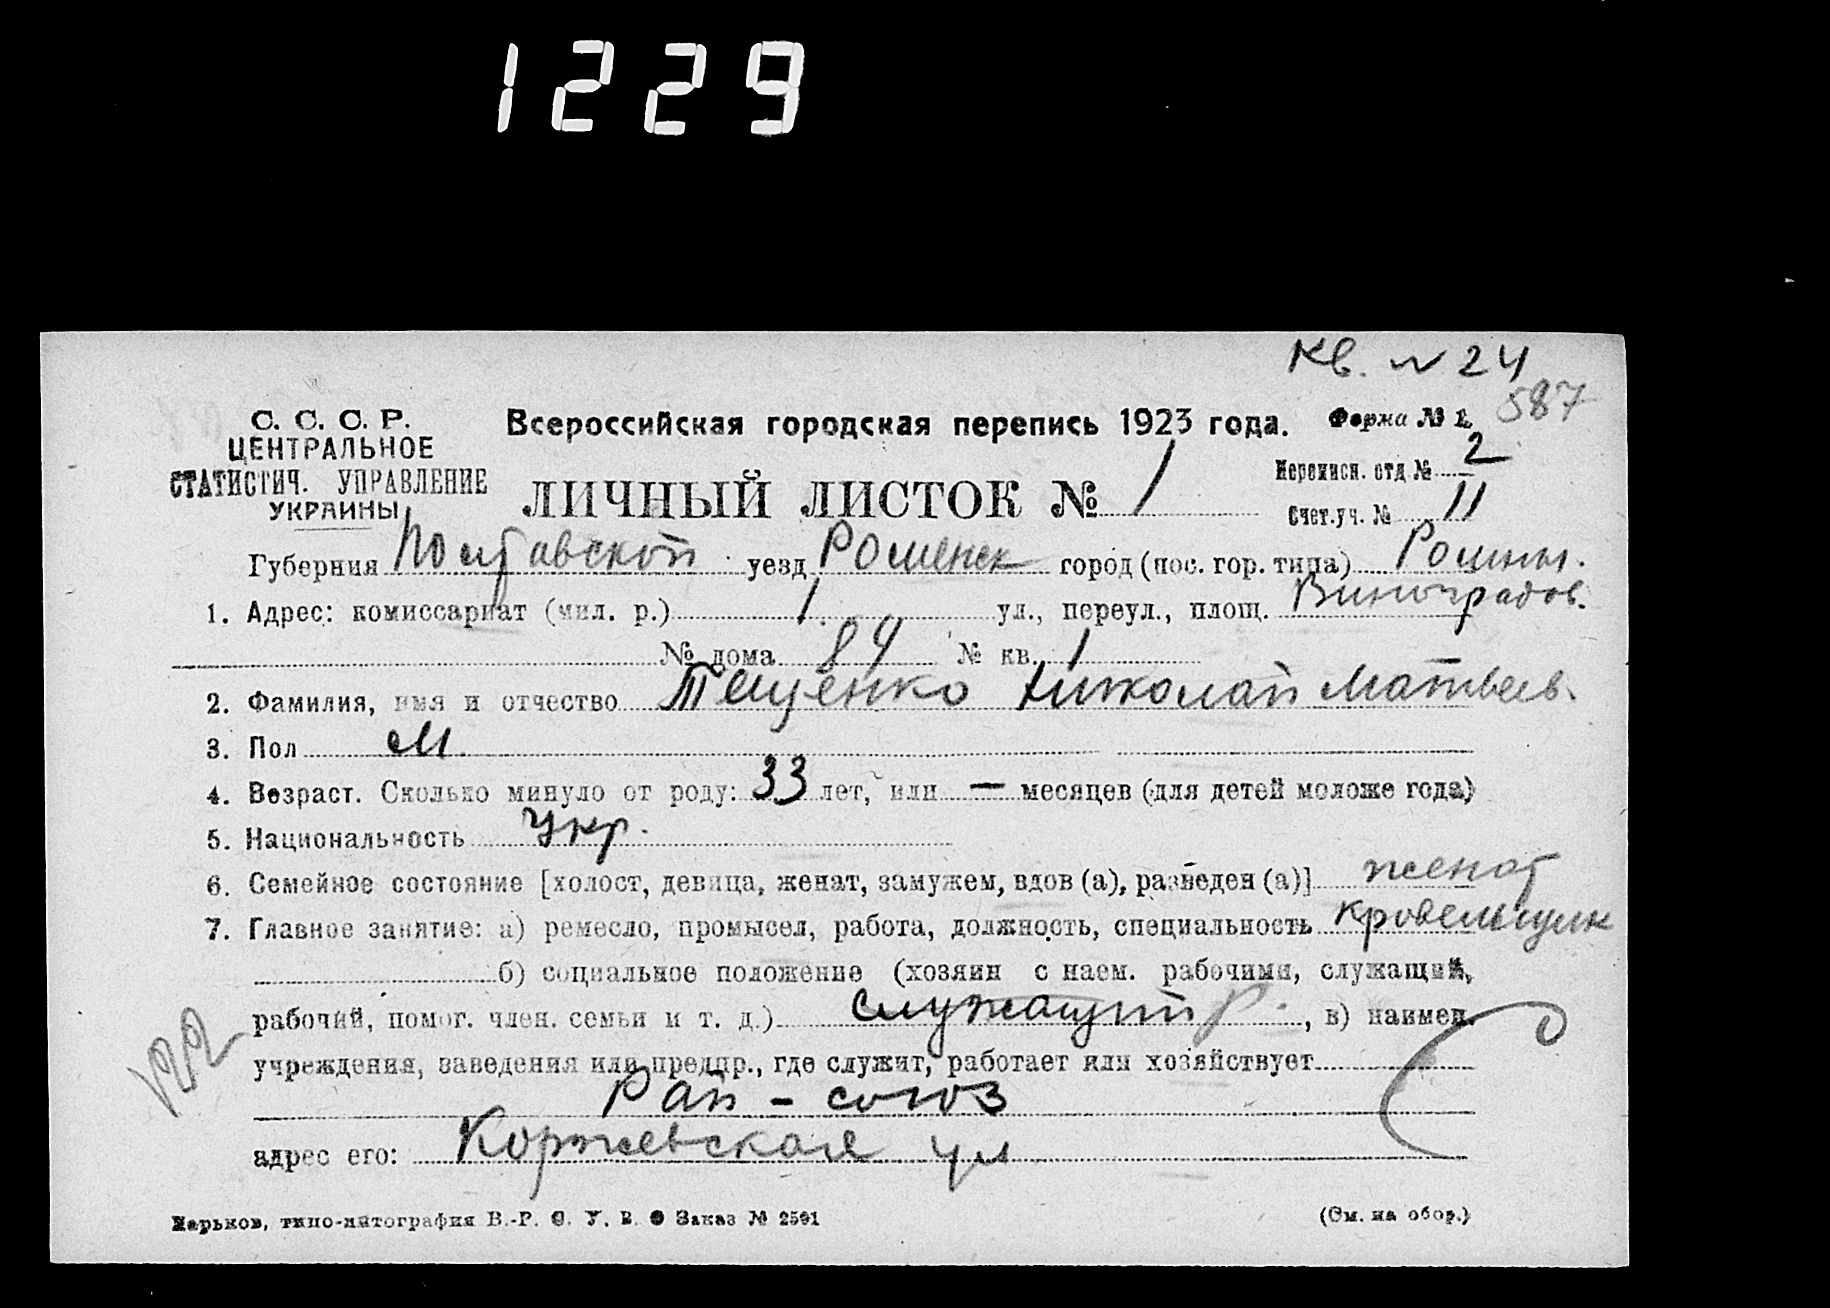 1229
Кв. № 24
587
С. С. С. Р.
ЦЕНТРАЛЬНОЕ
СТАТИСТИЧ. УПРАВЛЕНИЕ
УКРАИНЫ
Всероссийская городская перепись 1923 года.
Форма № 1.
ЛИЧНЫЙ ЛИСТОК № 1
Переписн. отд № 2
Счет.уч. № 11
Губерния Полтавской уезд Роменск город (пос. гор. типа) Ромны.
1. Адрес: комиссариат (мил. р.) 1 ул., переул., площ. Виноградов.
№ дома 84 № кв. 1
2. Фамилия, имя и отчество Тещенко Николай Матвеев.
3. Пол М.
4. Возраст. Сколько минуло от роду: 33 лет, или — месяцев (для детей моложе года)
5. Национальность Укр.
6. Семейное состояние [холост, девица, женат, замужем, вдов (а), разведен (а)] женат
7. Главное занятие: а) ремесло, промысел, работа, должность, специальность кровельщик
б) социальное положение (хозяин с наем. рабочими, служащий,
рабочий, помог. член. семьи и т. д.) служащий р. , в) наимен.
учреждения, заведения или предпр., где служит, работает или хозяйствует
Рай - союз
адрес его: Коржевская ул
122
Харьков, типо-литография В.-Р. С. У. В. О Заказ № 2591
(См. на обор.)